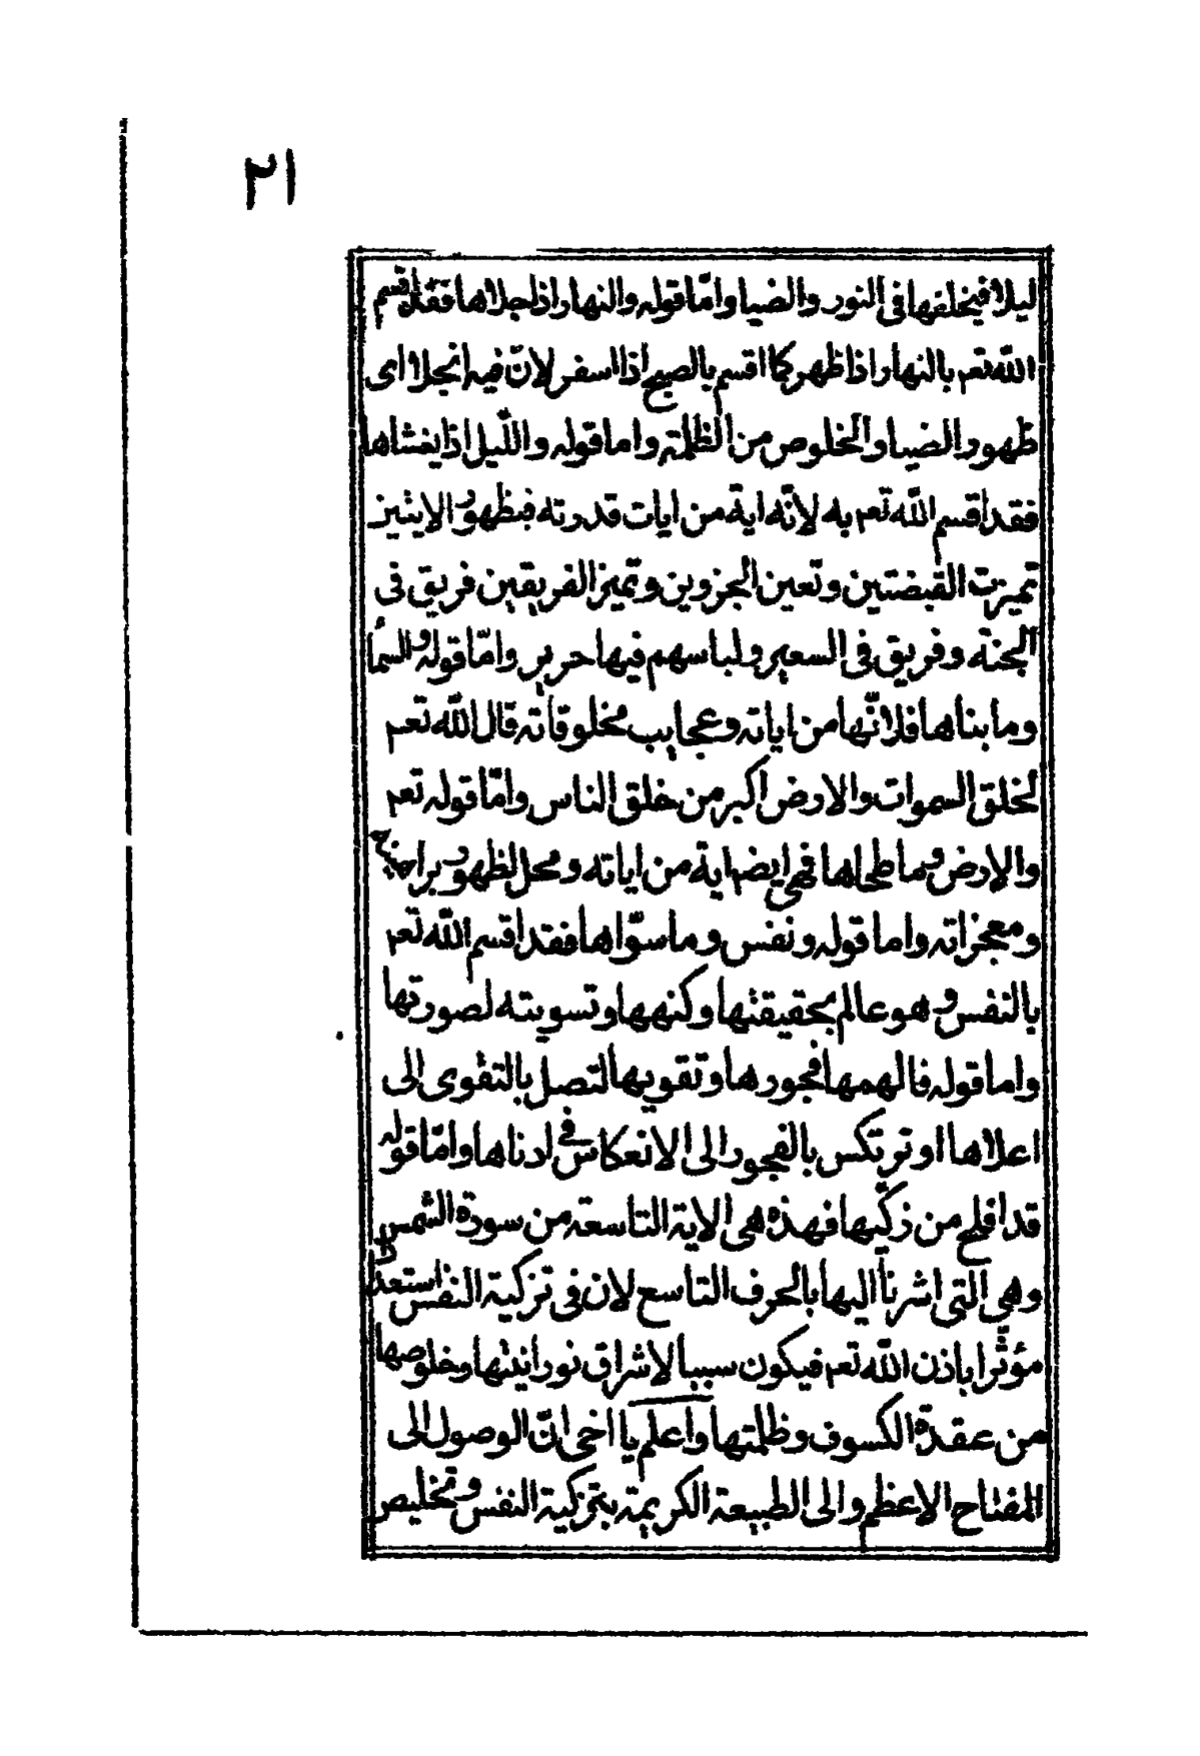 ٢١
ليلا فيخلفها فى النور والضيا وامّا قوله والنهار اذا جلاها فقد اقسم
اللّه تعم بالنهار اذا ظهر كما اقسم بالصبح اذا اسفر لانّ فيه انجلا اى
ظهور الضيا والخلوص من الظلمة واما قوله واللّيل اذا يغشاها
فقد اقسم اللّه تعم به لانّه اية من ايات قدرته فبظهور الايتين
تميزت القبضتين وتعين الجزوين وتميز الفريقين فريق فى
الجنة وفريق فى السعير ولباسهم فيها حرير وامّا قوله والسمأ
وما بناها فلانّها من اياته وعجايب مخلوقاته قال اللّه تعم
لخلق السموات والارض اكبر من خلق الناس وامّا قوله تعم
والارض وما طحاها فهى ايضم اية من اياته ومحل لظهور
ومعجزاته واما قوله ونفس وما سوّاها فقد اقسم اللّه تعم
بالنفس وهو عالم بحقيقتها وكنهها وتسويته لصورتها
واما قوله فالهمها فجورها وتقويها لتصل بالتقوى الى
اعلاها او ترتكس بالفجور الى الانعكاس فى ادناها وامّا قوله
قد افلح من زكّيها فهذه هى الاية التاسعة من سورة الشمس
وهى التى اشرنا اليها بالحرف التاسع لان فى تزكية النفس استعدادا
مؤثّرا باذن اللّه تعم فيكون سببا لاشراق نورانيتها وخلوصها
من عقدة الكسوف وظلمتها واعلم يا اخى انّ الوصول الى
المفتاح الاعظم والى الطبيعة الكريمة بتزكية النفس وتخليص